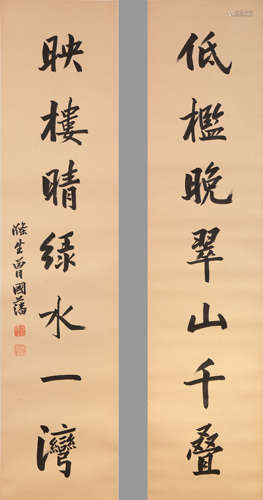 低檻晚翠山千叠
映樓晴緑水一灣
滌生曾國藩